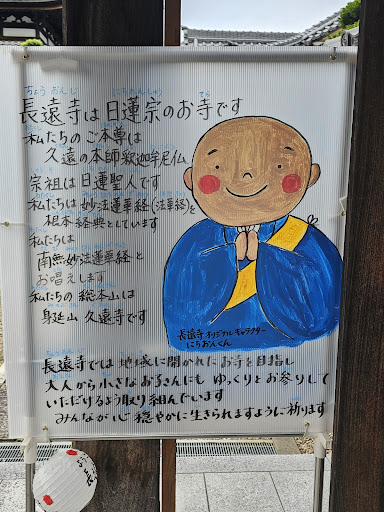 ちょうおんじ にちれんしゅう てら
長遠寺は日蓮宗のお寺です
私たちのご本尊は
久遠の本師釈迦牟尼仏
宗祖は日蓮聖人です
私たちは妙法蓮華経(法華経)を
根本経典としています
私たちは
南無妙法蓮華経と
お唱えします
私たちの総本山は
身延山久遠寺です
長遠寺オリジナルキャラクター
にちおんくん
長遠寺では地域に開かれたお寺を目指し
大人から小さなお子さんにもゆっくりとお参りして
いただけるよう取り組んでいます
みんなが心穏やかに生きられますように祈ります